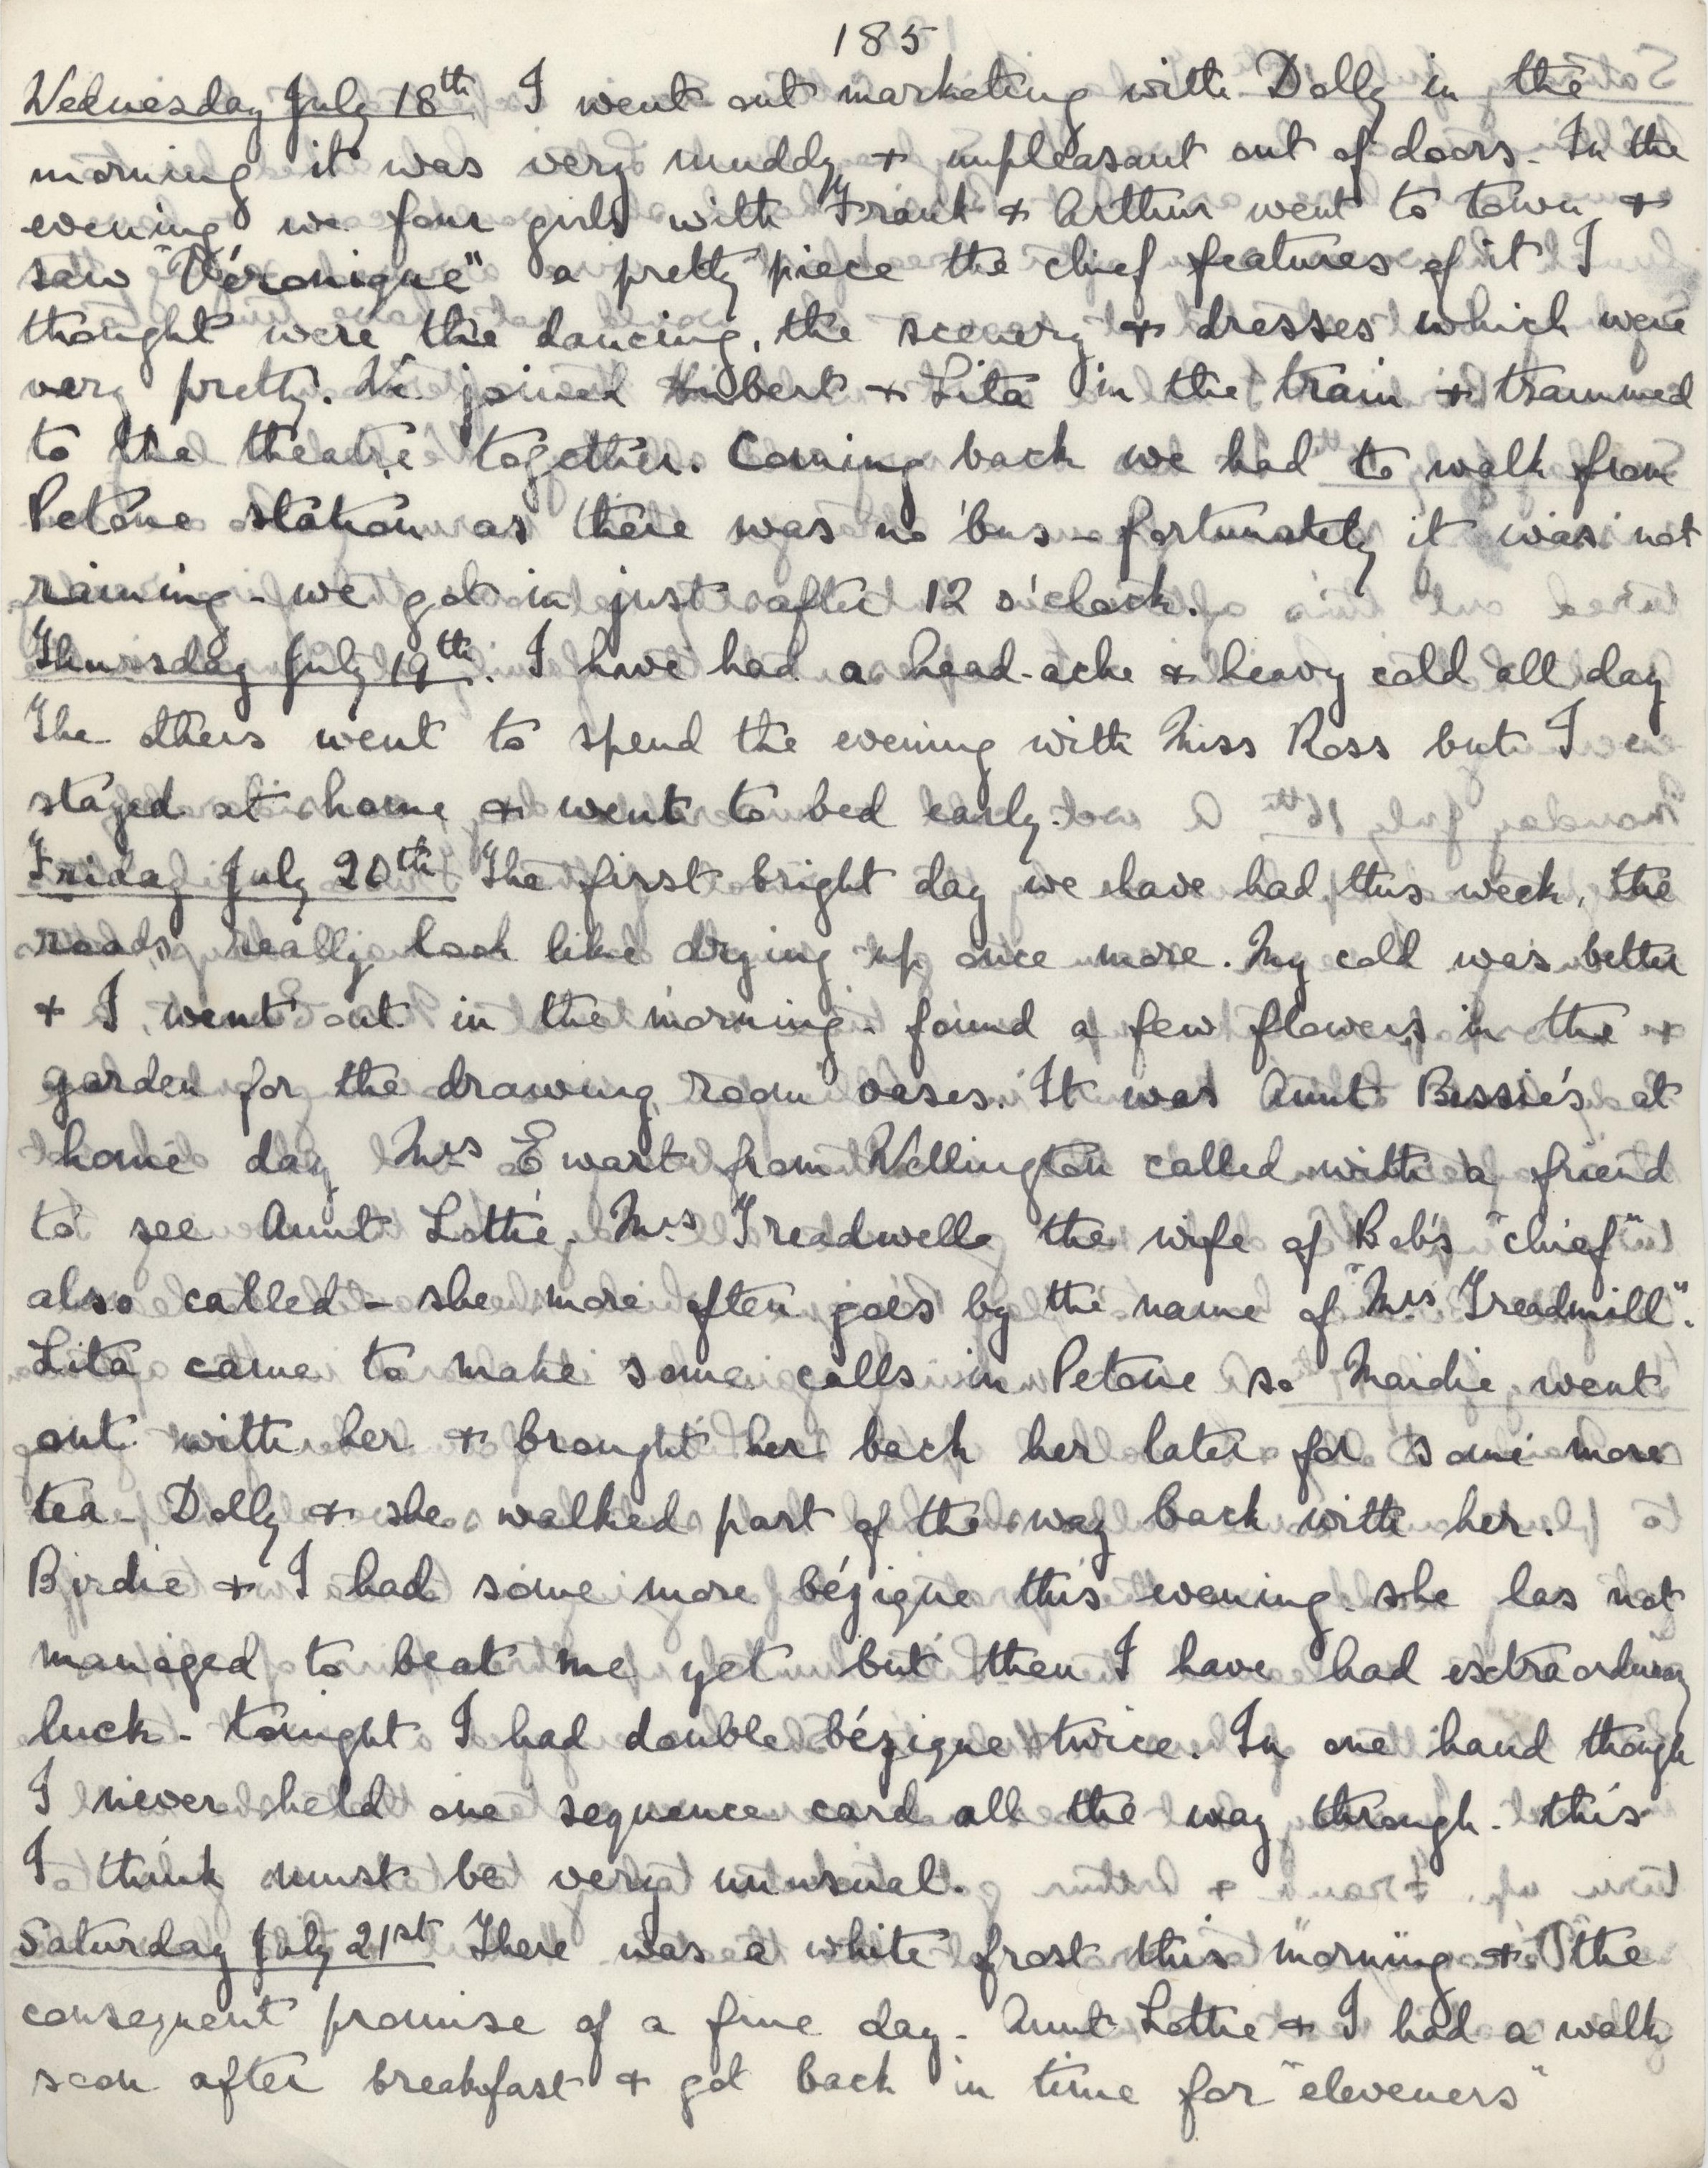 185
Wednesday July 18th I went out marketing with Dolly in the
morning it was very muddy + unpleasant out of doors. In the
evening we four girls with Frank + Arthur went to town +
saw "Véronique" a pretty piece the chief features of it I
thought were the dancing, the scenery + dresses which were
very pretty. We joined Hubert + Lita in the train + trammed
to the theatre together. Coming back we had to walk from
Petone station as there was no 'bus - fortunately it was not
raining - we got in just after 12 o'clock.
Thursday July 19th. I have had a head-ache + heavy cold all day
The others went to spend the evening with Miss Ross but I
stayed at home + went to bed early.
Friday July 20th The first bright day we have had this week, the
roads really look like drying up once more. My cold was better
+ I went out in the morning - found a few flowers in the
garden for the drawing room vases. It was Aunt Bessie's at
home day Mrs Ewart from Wellington called with a friend
to see Aunt Lottie. Mrs Treadwell the wife of Bob's "chief"
also called - she more often goes by the name of "Mrs Treadmill".
Lita came to make some calls in Petone so Maidie went
out with her + brought her back her later for some more
tea - Dolly + she walked part of the way back with her.
Birdie + I had some more bézique this evening - she has not
managed to beat me yet but then I have had extraordinary
luck - tonight I had double bézique twice. In one hand though
I never held one sequence card all the way through - this
I think must be very unusual.
Saturday July 21st There was a white frost this morning + the
consequent promise of a fine day - Aunt Lottie + I had a walk
soon after breakfast + got back in time for "eleveners"